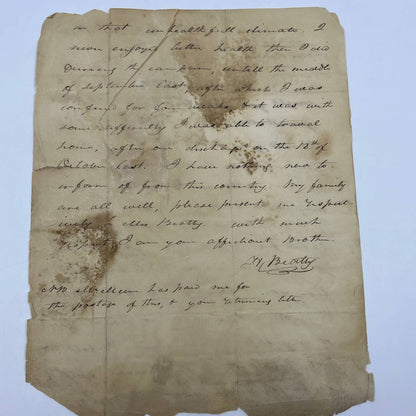 in that unhealthfull climate. I
never enjoyed better health then I did
During the campain, untill the middle
of September last, after which I was
confined for four weeks, & it was with
some difficulty I was able to travel
home, after our discharge on the 12th of
October last. I have nothing new to
inform of from this country. My family
are all well, please present me respect
ively to Mrs Beatty with much
respect I am your affectionate Brother.
A Beatty
NB has paid me for
the postage of this, & your returning